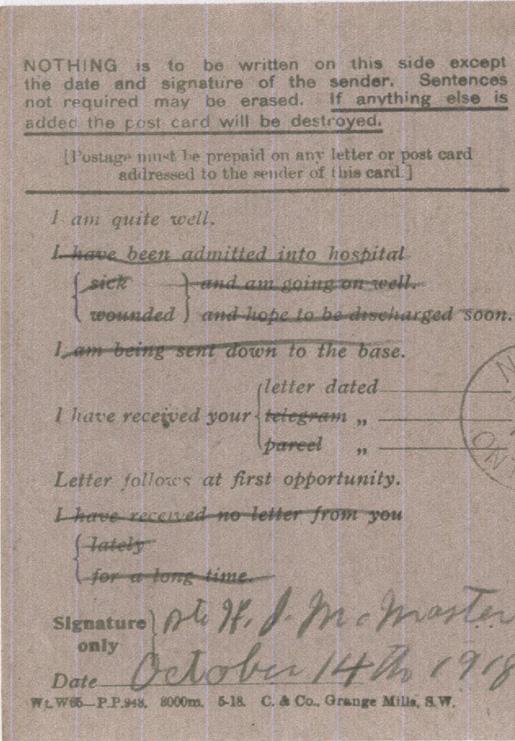 NOTHING is to be written on this side except
the date and signature of the sender. Sentences
not required may be erased. If anything else is
added the post card will be destroyed.
[Postage must be prepaid on any letter or post card
addressed to the sender of this card.]
I am quite well.
I have been admitted into hospital
{ sick } and am going on well.
{ wounded } and hope to be discharged soon.
I am being sent down to the base.
letter dated
I have received your { telegram „
parcel „
Letter follows at first opportunity.
I have received no letter from you
{ lately
for a long time.
Signature only } Pte H. J. McMaster
Date October 14th 1918
Wt. W65—P.P.948. 8000m. 5-18. C. & Co., Grange Mills, S.W.